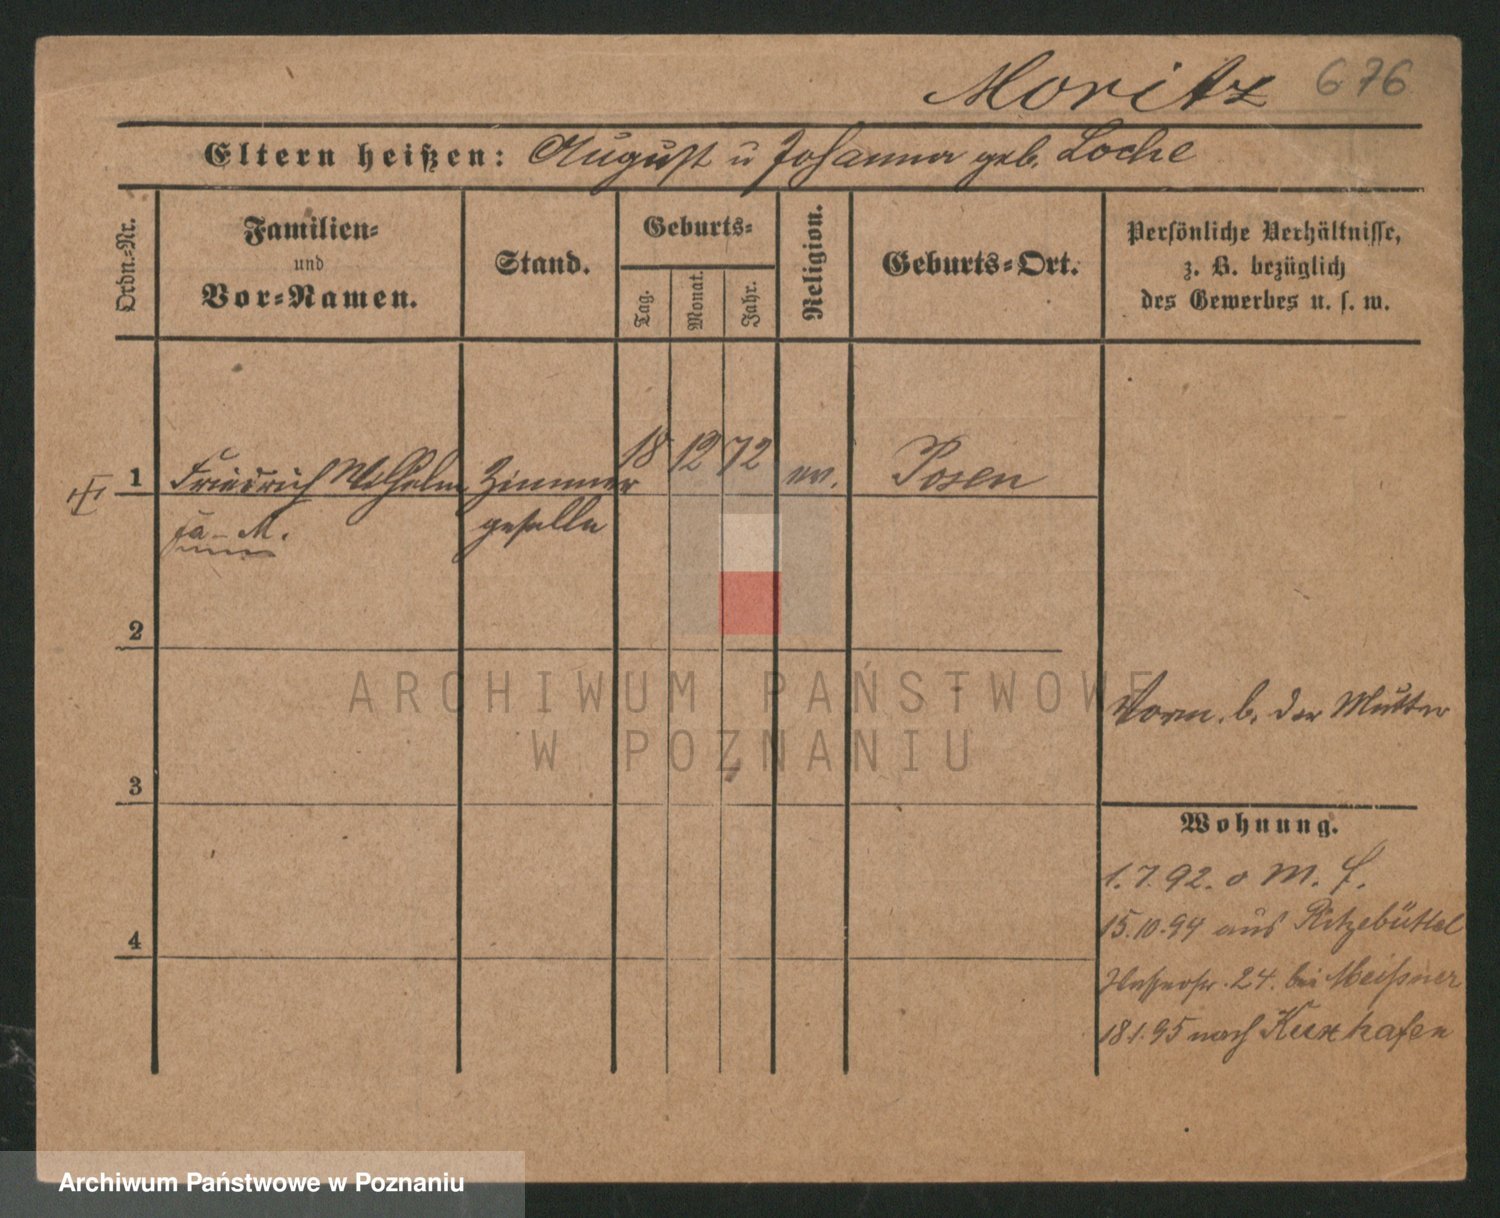 Moritz 676
Eltern heißen: August u Johanna geb. Loche
Ordn.-Nr.
Familien-
und
Vor-Namen.
Stand.
Geburts-
Tag.
Monat.
Jahr.
Religion.
Geburts-Ort.
Persönliche Verhältnisse,
z. B. bezüglich
des Gewerbes u. s. w.
1 Friedrich Wilhelm Zimmer 18 12 72 ev. Posen
geselle
2
ARCHIWUM PAŃSTWOWE
W POZNANIU
Vorm. b. der Mutter
3
Wohnung.
1.7.92. o M. f.
15.10.94 aus Ritzebüttel
24. bei Meißner
18.1.95 nach Kuxhafen
4
Archiwum Państwowe w Poznaniu